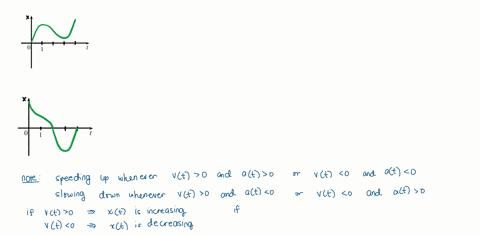 x
0 1 t
x
0 1 t
note: speeding up whenever v(t) >0 and a(t)>0 or v(t) <0 and a(t)<0
slowing down whenever v(t) >0 and a(t)<0 or v(t) <0 and a(t) >0
if v(t)>0 ⇒ x(t) is increasing if
v(t)<0 ⇒ x(t) is decreasing